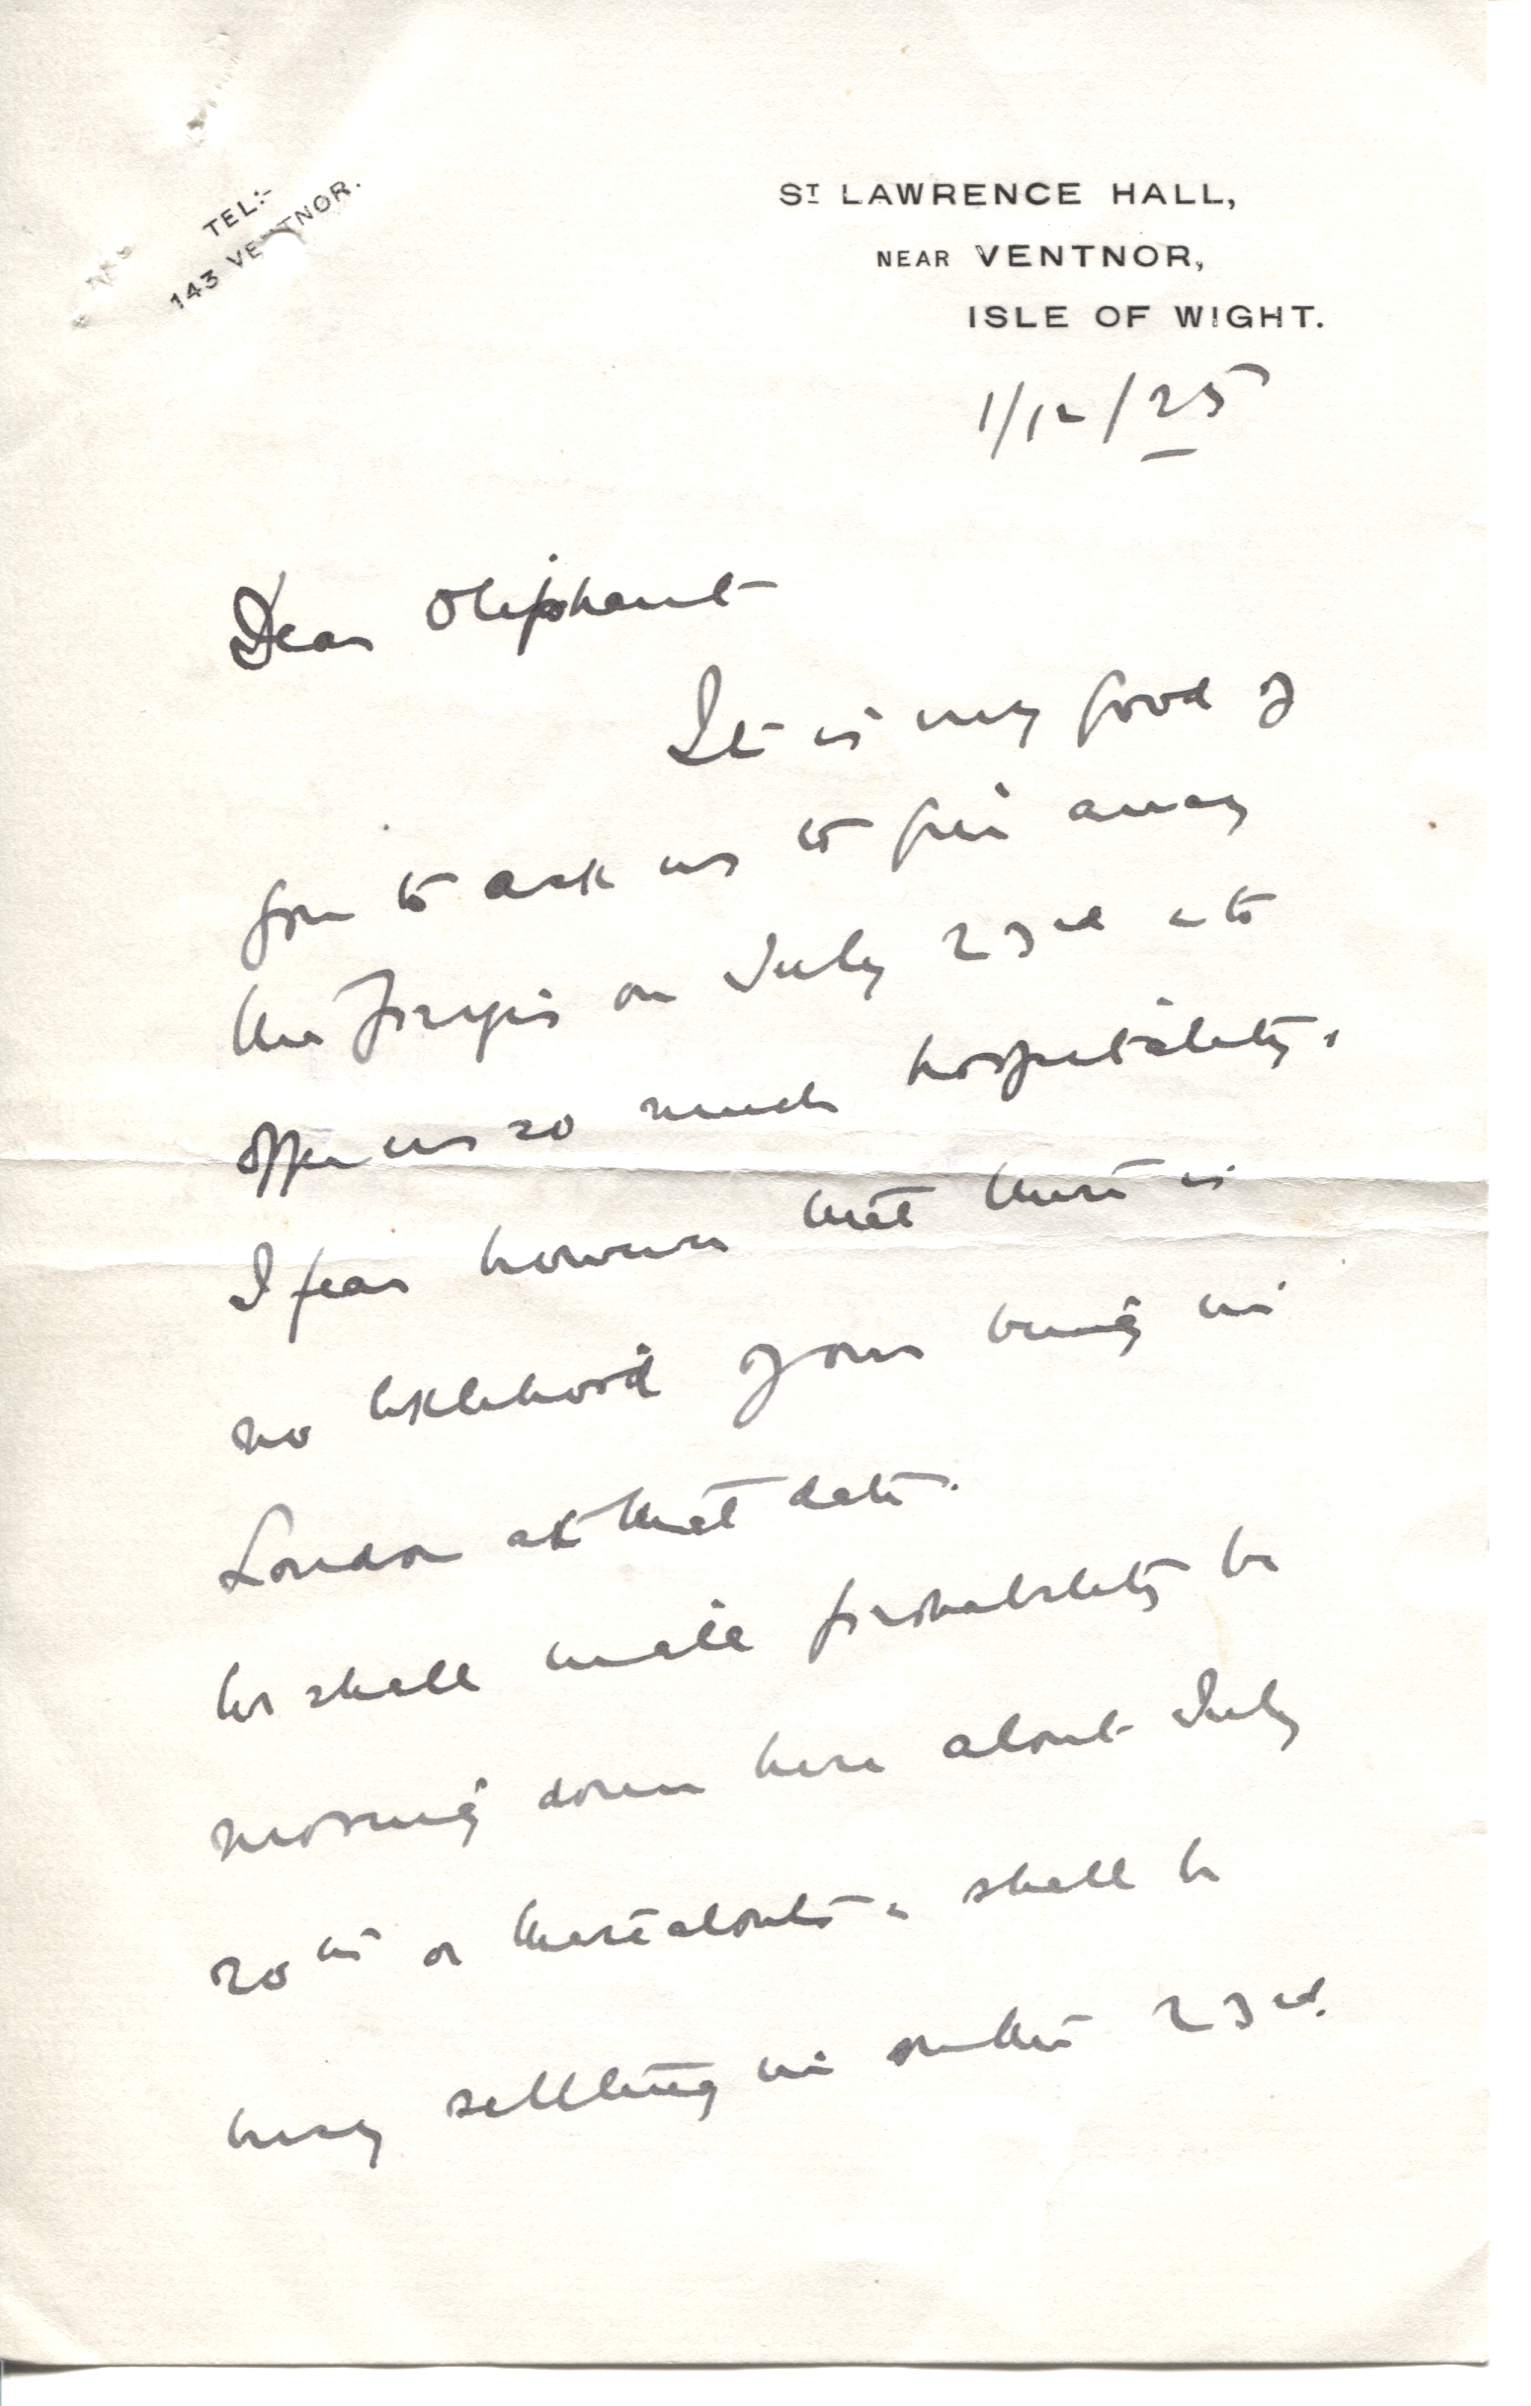 TEL:-
143 VENTNOR.
ST LAWRENCE HALL,
NEAR VENTNOR,
ISLE OF WIGHT.
1/12/25
Dear Oliphant
It is very good of
you to ask us to give away
the Prizes on July 23rd & to
offer us so much hospitality.
I fear however that there is
no likelihood of our being in
London at that date.
We shall in all probability be
moving down here about July
20th or thereabouts & shall be
busy settling in on the 23rd.